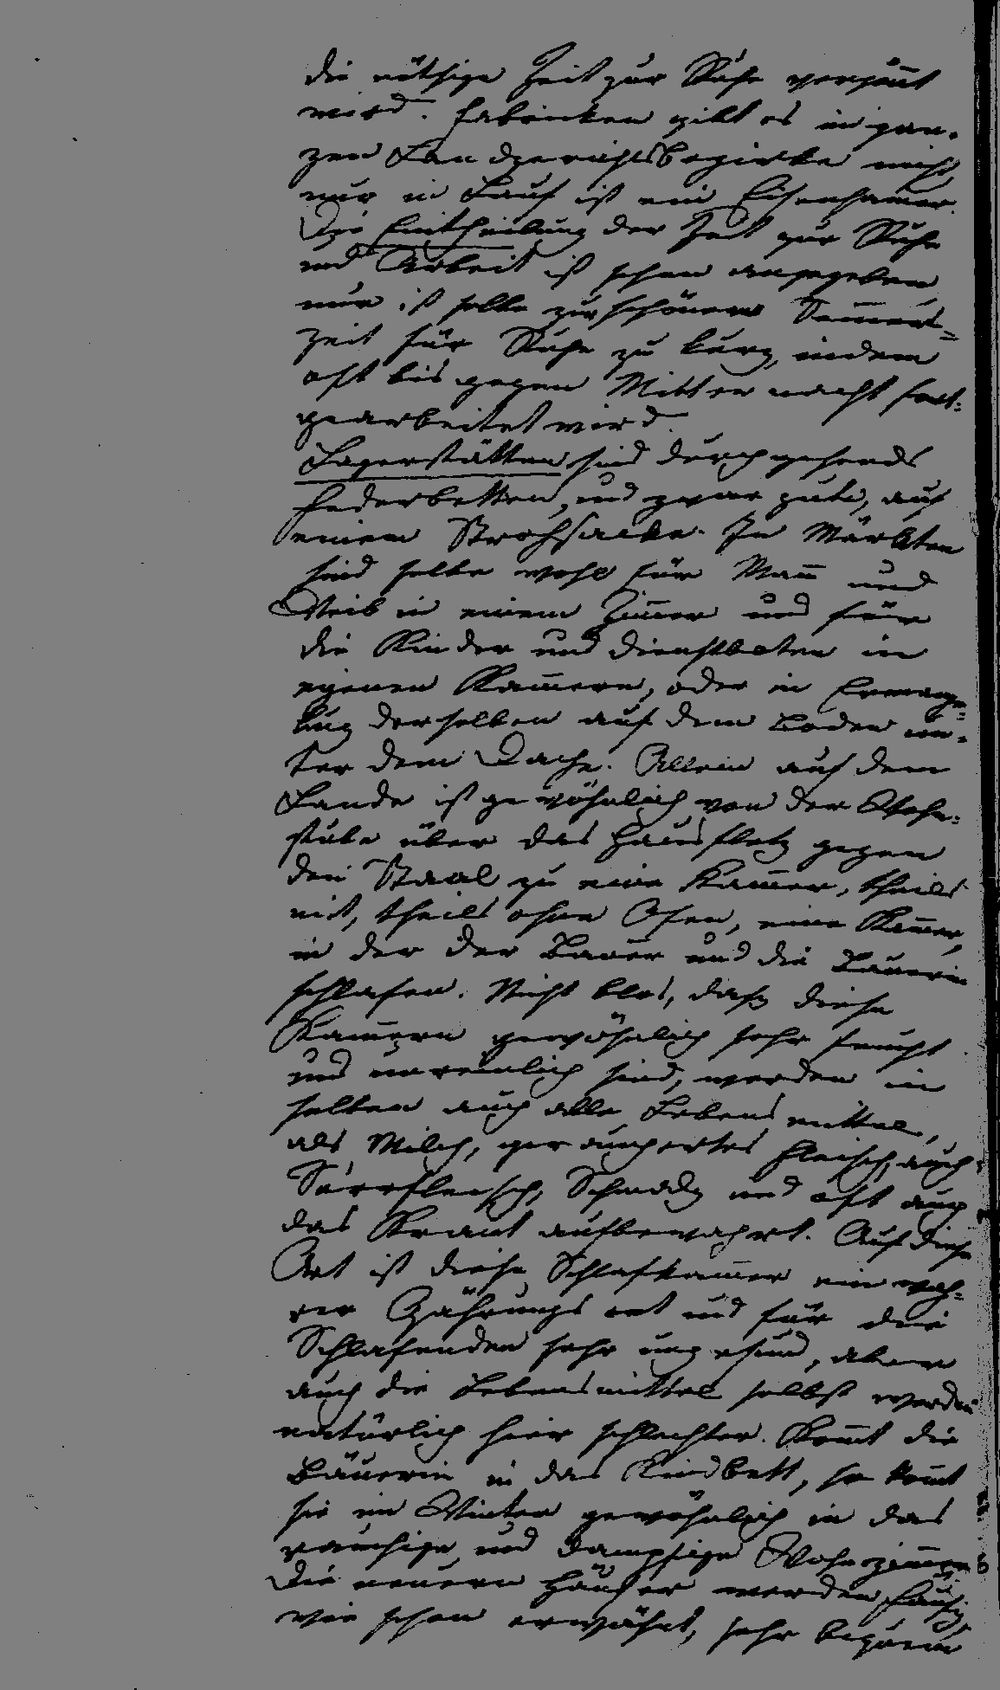 die nöthige Zeit zur Ruhe vergönnt
wird. Fabricken gibt es im gan-
zen Landgerichtsbezirke nicht,
nur in Lauf ist ein Eisenhamer.
Die Eintheilung der Zeit zur Ruhe
und Arbeit ist schon angegeben
nur ist selbe zur schönern Sommers-
zeit für Ruhe zu kurz, indem
oft bis gegen Mitternacht fort-
gearbeitet wird.
Lagerstätten sind durchgehends
Federbetten, und zwar gute, auf
einem Strohsacke. In Märkten
sind selbe wohl für Mann und
Weib in einem Zimer und für
die Kinder und Dienstboten in
eigenen Kammern, oder in Ermange-
lung derselben auf dem Boden un-
ter dem Dache. Allein auf dem
Lande ist gewöhnlich von der Wohn-
stube über das Hausfletz gegen
den Staal zu eine Kammer, theils
mit, theils ohne Ofen, eine Kammer,
in der der Bauer und die Bäuerin
schlafen. Nicht blos, daß diese
Kammern gewöhnlich sehr feucht
und unreinlich sind, werden in
selben auch alle Lebensmittel,
als Milch, geräuchertes Fleisch, auch
Dürrfleisch, Schmalz und oft auch
das Kraut aufbewahrt. Auf diese
Art ist diese Schlafkammer ein wah-
rer Gährungsort und für die
Schlafenden sehr ungesund, aber
auch die Lebensmittel selbst werden
natürlich hier schlechter. Kommt die
Bäuerin in das Kindbett, so kommt
sie im Winter gewöhnlich in das
rauchige und dampfige Wohnzimmer
Die neuern Häuser werden häufig,
wie schon erwähnt, sehr bequem